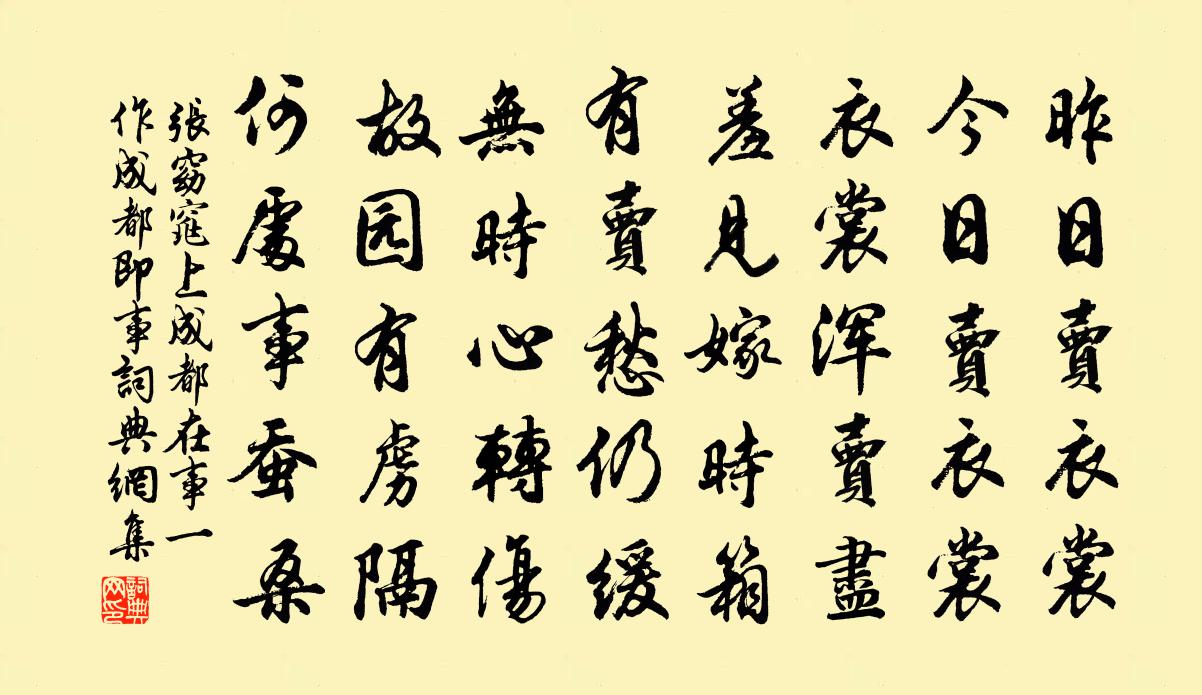 昨日賣衣裳
今日賣衣裳
衣裳浑賣盡
羞見嫁時箱
有賣愁仍缓
無時心轉傷
故园有虏隔
何處事蚕桑
張窈窕上成都在事一
作成都即事詞典網集
詞典网印